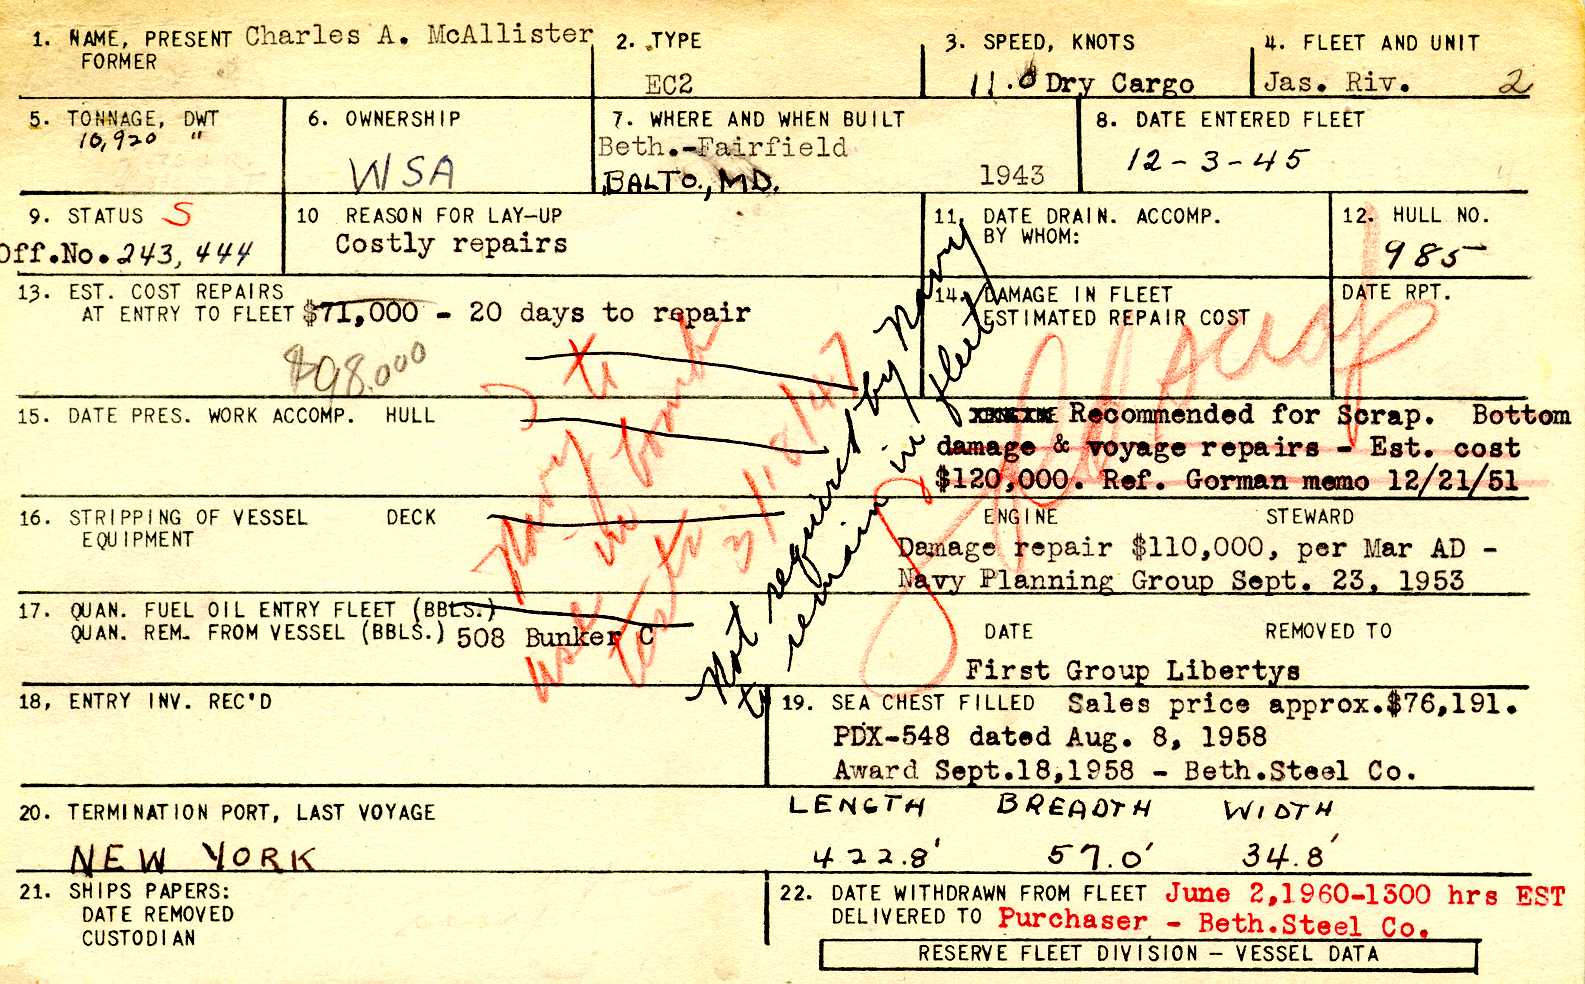 1. NAME, PRESENT Charles A. McAllister
FORMER
2. TYPE
EC2
3. SPEED, KNOTS
11.0 Dry Cargo
4. FLEET AND UNIT
Jas. Riv. 2
5. TONNAGE, DWT
10,920 "
6. OWNERSHIP
WSA
7. WHERE AND WHEN BUILT
Beth.-Fairfield
BALTO., MD. 1943
8. DATE ENTERED FLEET
12-3-45
9. STATUS S
Off.No. 243,444
10 REASON FOR LAY-UP
Costly repairs
11. DATE DRAIN. ACCOMP.
BY WHOM:
12. HULL NO.
985
13. EST. COST REPAIRS
AT ENTRY TO FLEET $71,000 - 20 days to repair
$98.000
14. DAMAGE IN FLEET
ESTIMATED REPAIR COST
DATE RPT.
Scrap
15. DATE PRES. WORK ACCOMP. HULL
Recommended for Scrap. Bottom
damage & voyage repairs - Est. cost
$120,000. Ref. Gorman memo 12/21/51
Navy to
use in bomb
tests 3/10/47
Not required by Navy
to remain in fleet
16. STRIPPING OF VESSEL DECK
EQUIPMENT
ENGINE STEWARD
Damage repair $110,000, per Mar AD -
Navy Planning Group Sept. 23, 1953
17. QUAN. FUEL OIL ENTRY FLEET (BBLS.)
QUAN. REM. FROM VESSEL (BBLS.) 508 Bunker C
DATE REMOVED TO
First Group Libertys
18, ENTRY INV. REC'D
19. SEA CHEST FILLED Sales price approx.$76,191.
PDX-548 dated Aug. 8, 1958
Award Sept.18,1958 - Beth.Steel Co.
20. TERMINATION PORT, LAST VOYAGE
NEW YORK
LENGTH BREADTH WIDTH
422.8' 57.0' 34.8'
21. SHIPS PAPERS:
DATE REMOVED
CUSTODIAN
22. DATE WITHDRAWN FROM FLEET June 2,1960-1300 hrs EST
DELIVERED TO Purchaser - Beth.Steel Co.
RESERVE FLEET DIVISION - VESSEL DATA